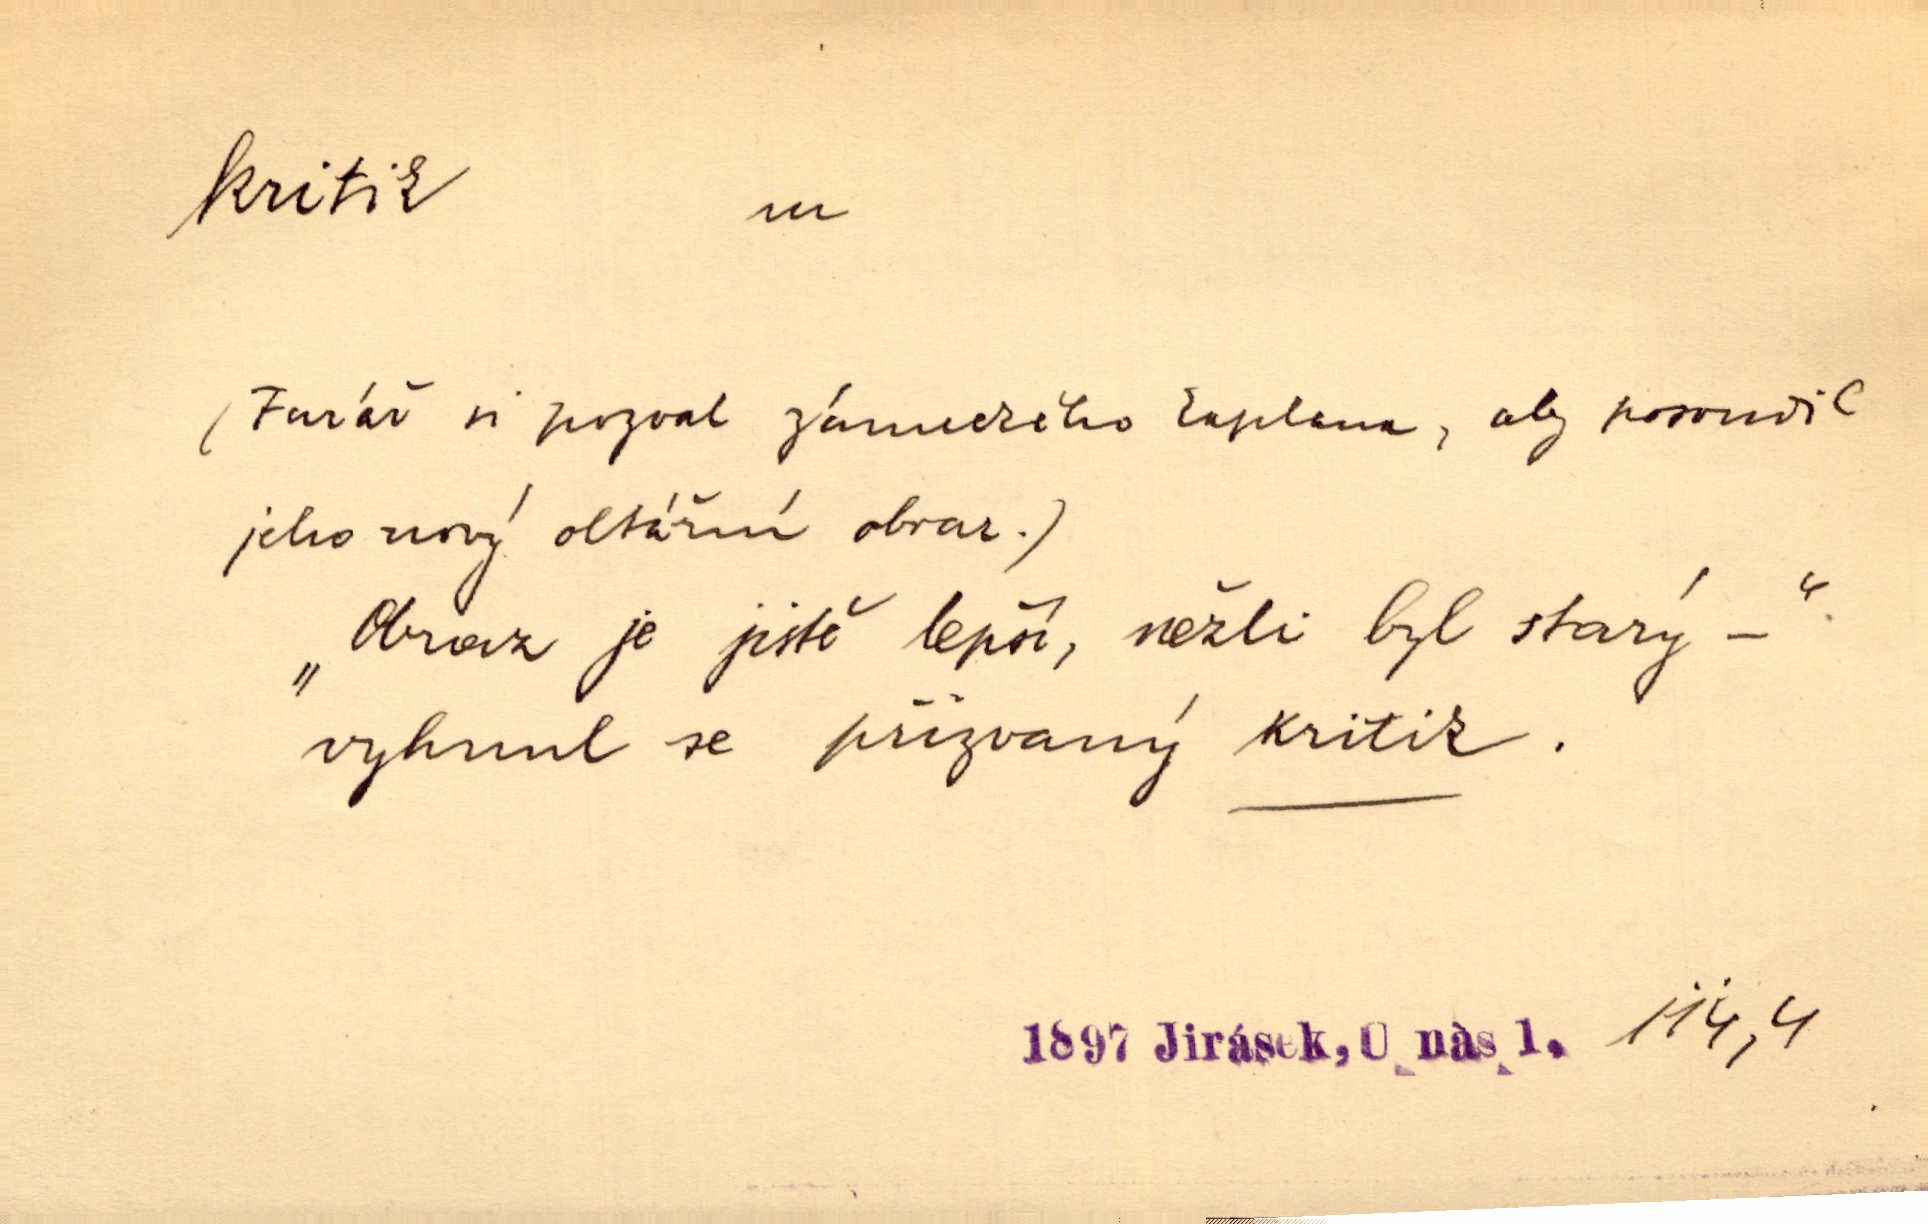 kritik m
(Farář si pozval zámeckého kaplana, aby posoudil
jeho nový oltářní obraz.)
„Obraz je jistě lepší, nežli byl starý – “
vyhnul se přizvaný kritik.
1897 Jirásek, U nás 1. 114,4